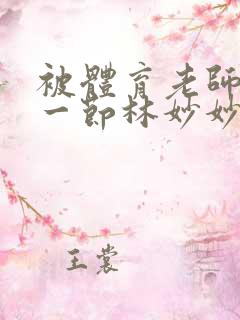 被體育老師
一節林妙妙
王裳